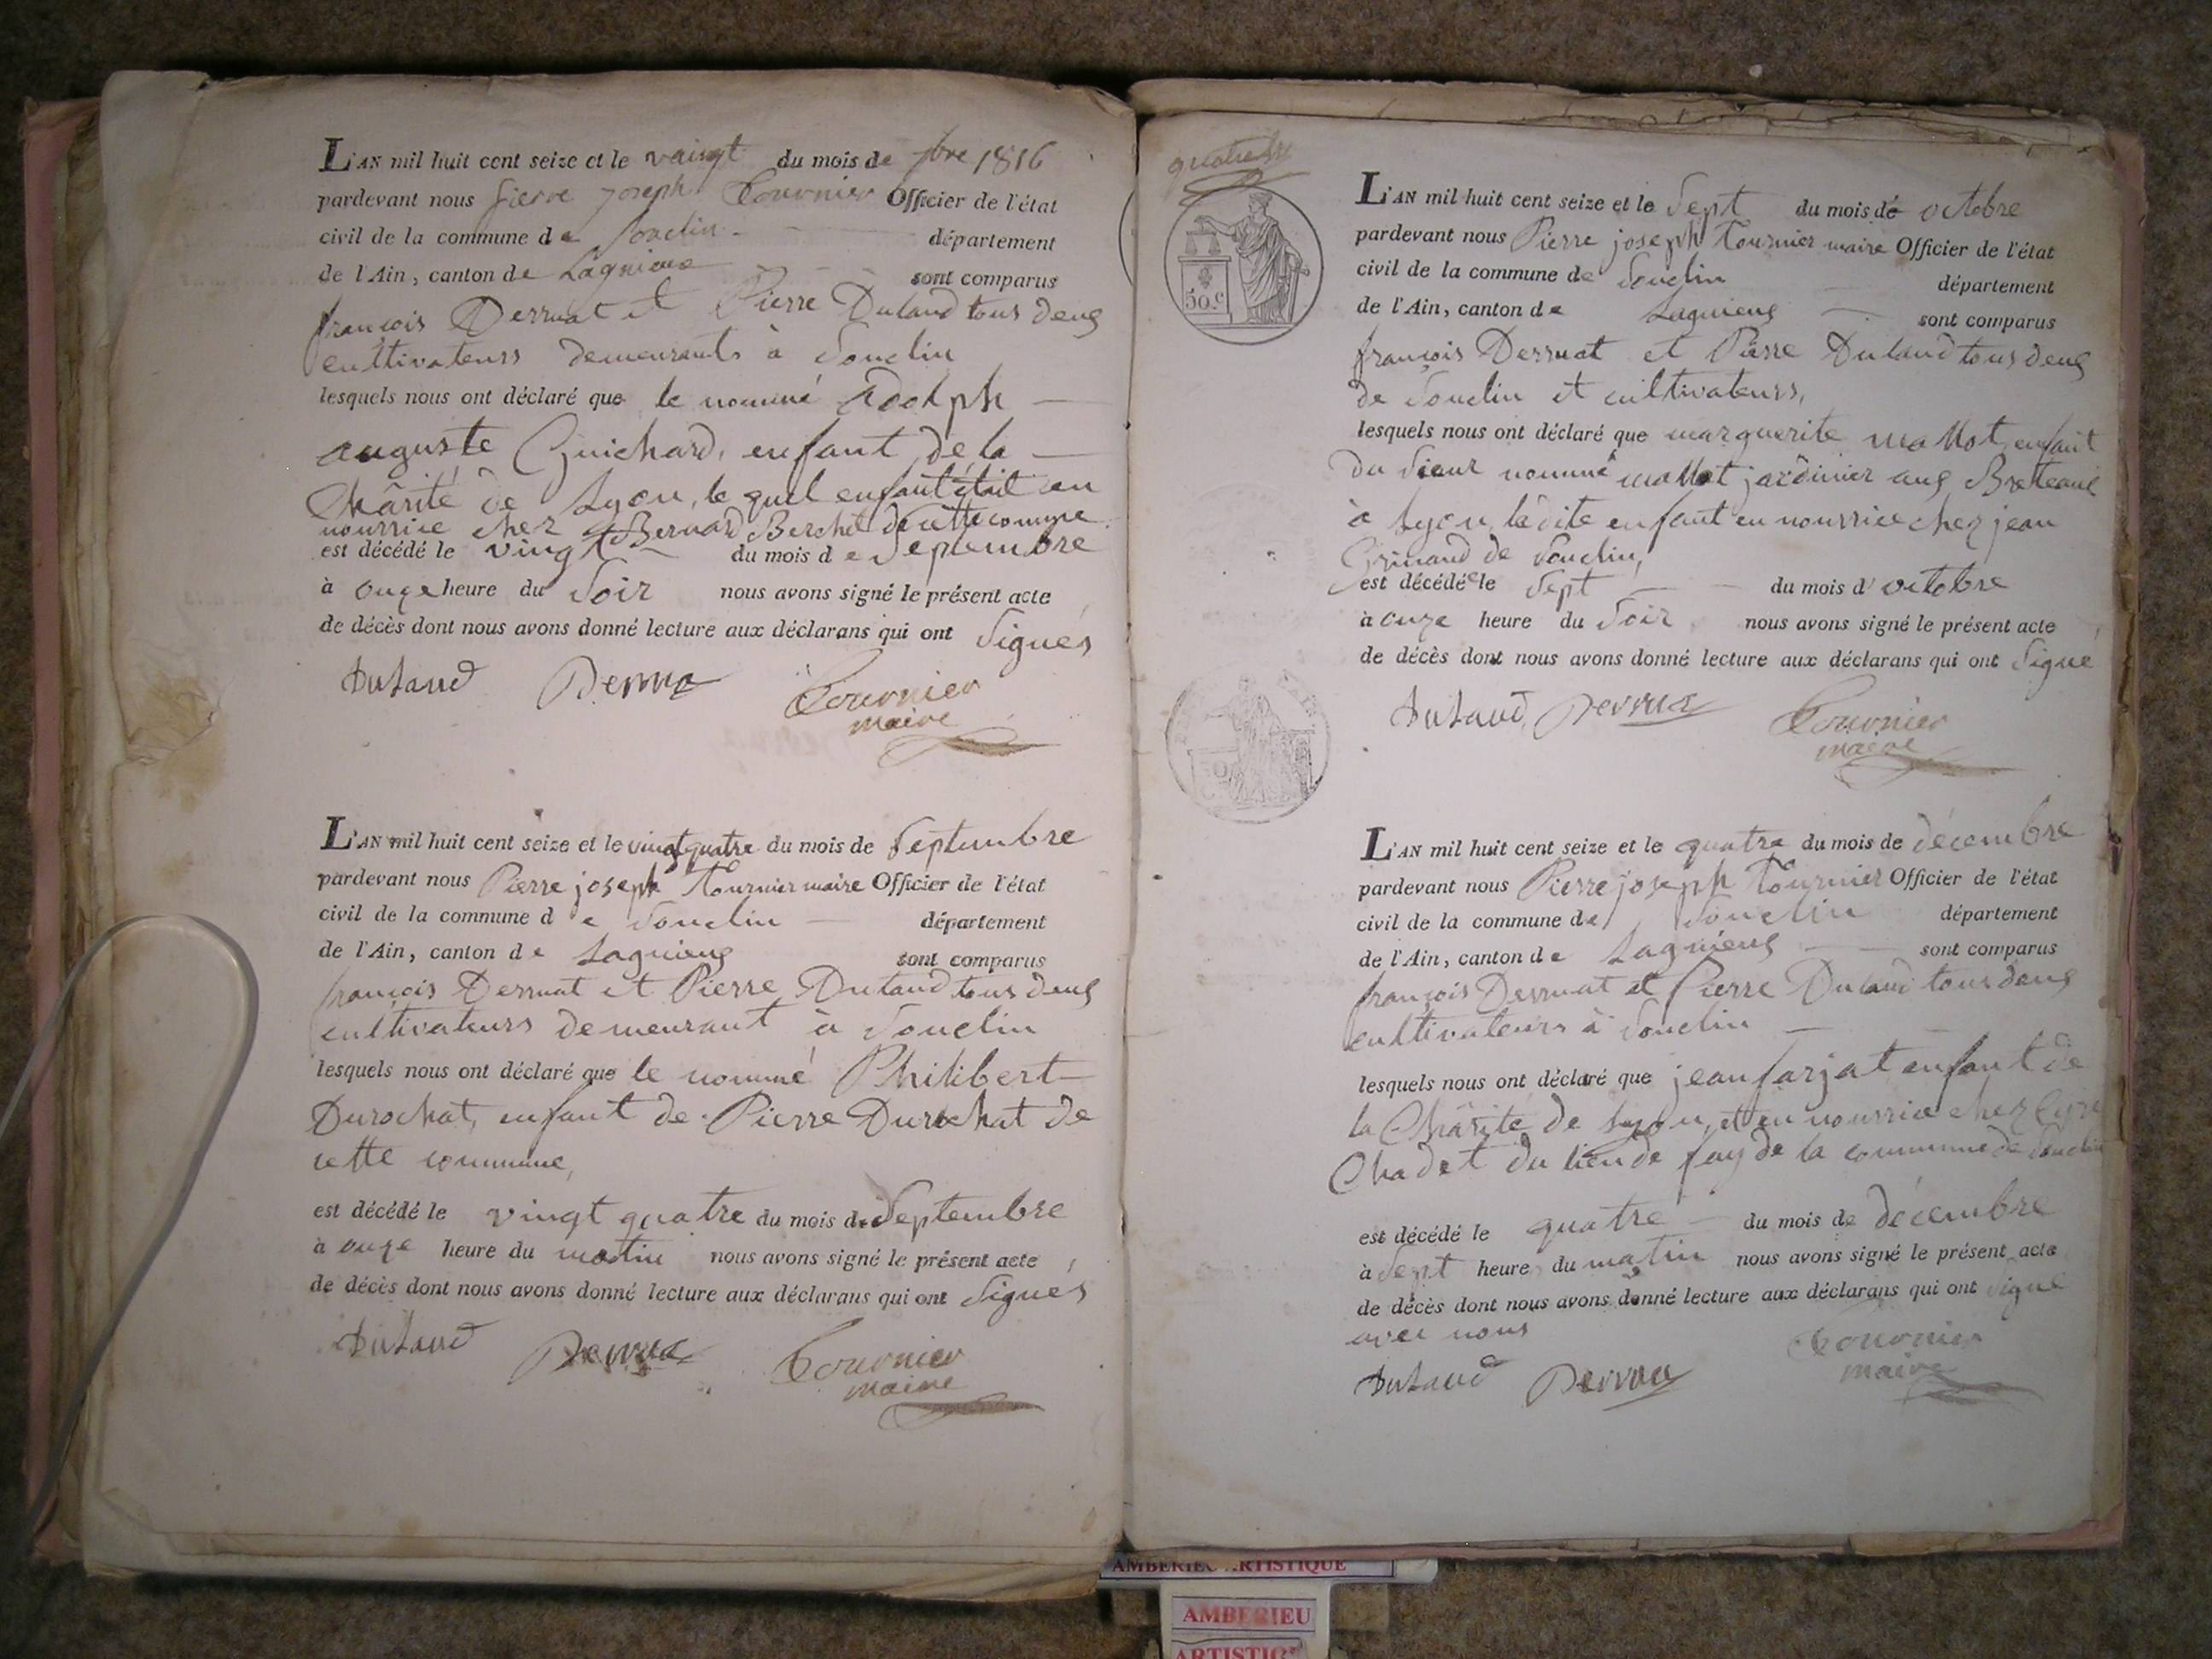 L'AN mil huit cent seize et le vaingt du mois de 7bre 1816
pardevant nous Pierre joseph Tournier Officier de l'état
civil de la commune de Souclin département
de l'Ain, canton de Lagnieux sont comparus
françois Derruat et Pierre Dutaud tous deux
cultivateurs demeurants à Souclin
lesquels nous ont déclaré que le nommé Adolph
auguste Guichard, enfant de la
Charité de Lyon, le quel enfant était en
nourrice chez Bernard Berchet de cette comune
est décédé le vingt du mois de Septembre
à onze heure du Soir nous avons signé le présent acte
de décès dont nous avons donné lecture aux déclarans qui ont Signés
Dutaud Derrua Tournier
maire
L'AN mil huit cent seize et le vingt quatre du mois de Septembre
pardevant nous Pierre joseph Tournier maire Officier de l'état
civil de la commune de Souclin département
de l'Ain, canton de Lagnieux sont comparus
françois Derruat et Pierre Dutaud tous deux
cultivateurs demeurant à Souclin
lesquels nous ont déclaré que le nommé Philibert
Durochat, enfant de Pierre Durochat de
cette commune,
est décédé le vingt quatre du mois de Septembre
à onze heure du matin nous avons signé le présent acte
de décès dont nous avons donné lecture aux déclarans qui ont Signés
Dutaud Derrua Tournier
maire
50 c
L'AN mil huit cent seize et le Sept du mois de octobre
pardevant nous Pierre joseph Tournier maire Officier de l'état
civil de la commune de Souclin département
de l'Ain, canton de Lagnieux sont comparus
françois Derruat et Pierre Dutaud tous deux
de Souclin et cultivateurs,
lesquels nous ont déclaré que marguerite mallot, enfant
du Sieur nommé mallot jardinier aux Breteaux
à Lyon, la dite enfant en nourrice chez jean
Grinand de Souclin,
est décédée le Sept du mois d'octobre
à onze heure du Soir nous avons signé le présent acte
de décès dont nous avons donné lecture aux déclarans qui ont Signé
Dutaud Derrua Tournier
maire
L'AN mil huit cent seize et le quatre du mois de décembre
pardevant nous Pierre joseph Tournier Officier de l'état
civil de la commune de Souclin département
de l'Ain, canton de Lagnieux sont comparus
françois Derruat et Pierre Dutaud tous deux
cultivateurs à Souclin
lesquels nous ont déclaré que jean farjat enfant de
la Charité de Lyon, et en nourrice chez
Chadet du lieu de fay de la commune de Souclin
est décédé le quatre du mois de décembre
à Sept heure du matin nous avons signé le présent acte
de décès dont nous avons donné lecture aux déclarans qui ont Signé
avec nous
Dutaud Derrua Tournier
maire
AMBERIEU ARTISTIQUE
AMBERIEU
ARTISTIQ